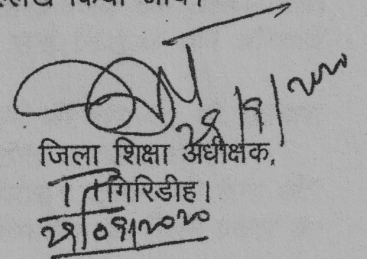 किया जाय।
28/9/2020
जिला शिक्षा अधीक्षक,
गिरिडीह।
28/09/2020